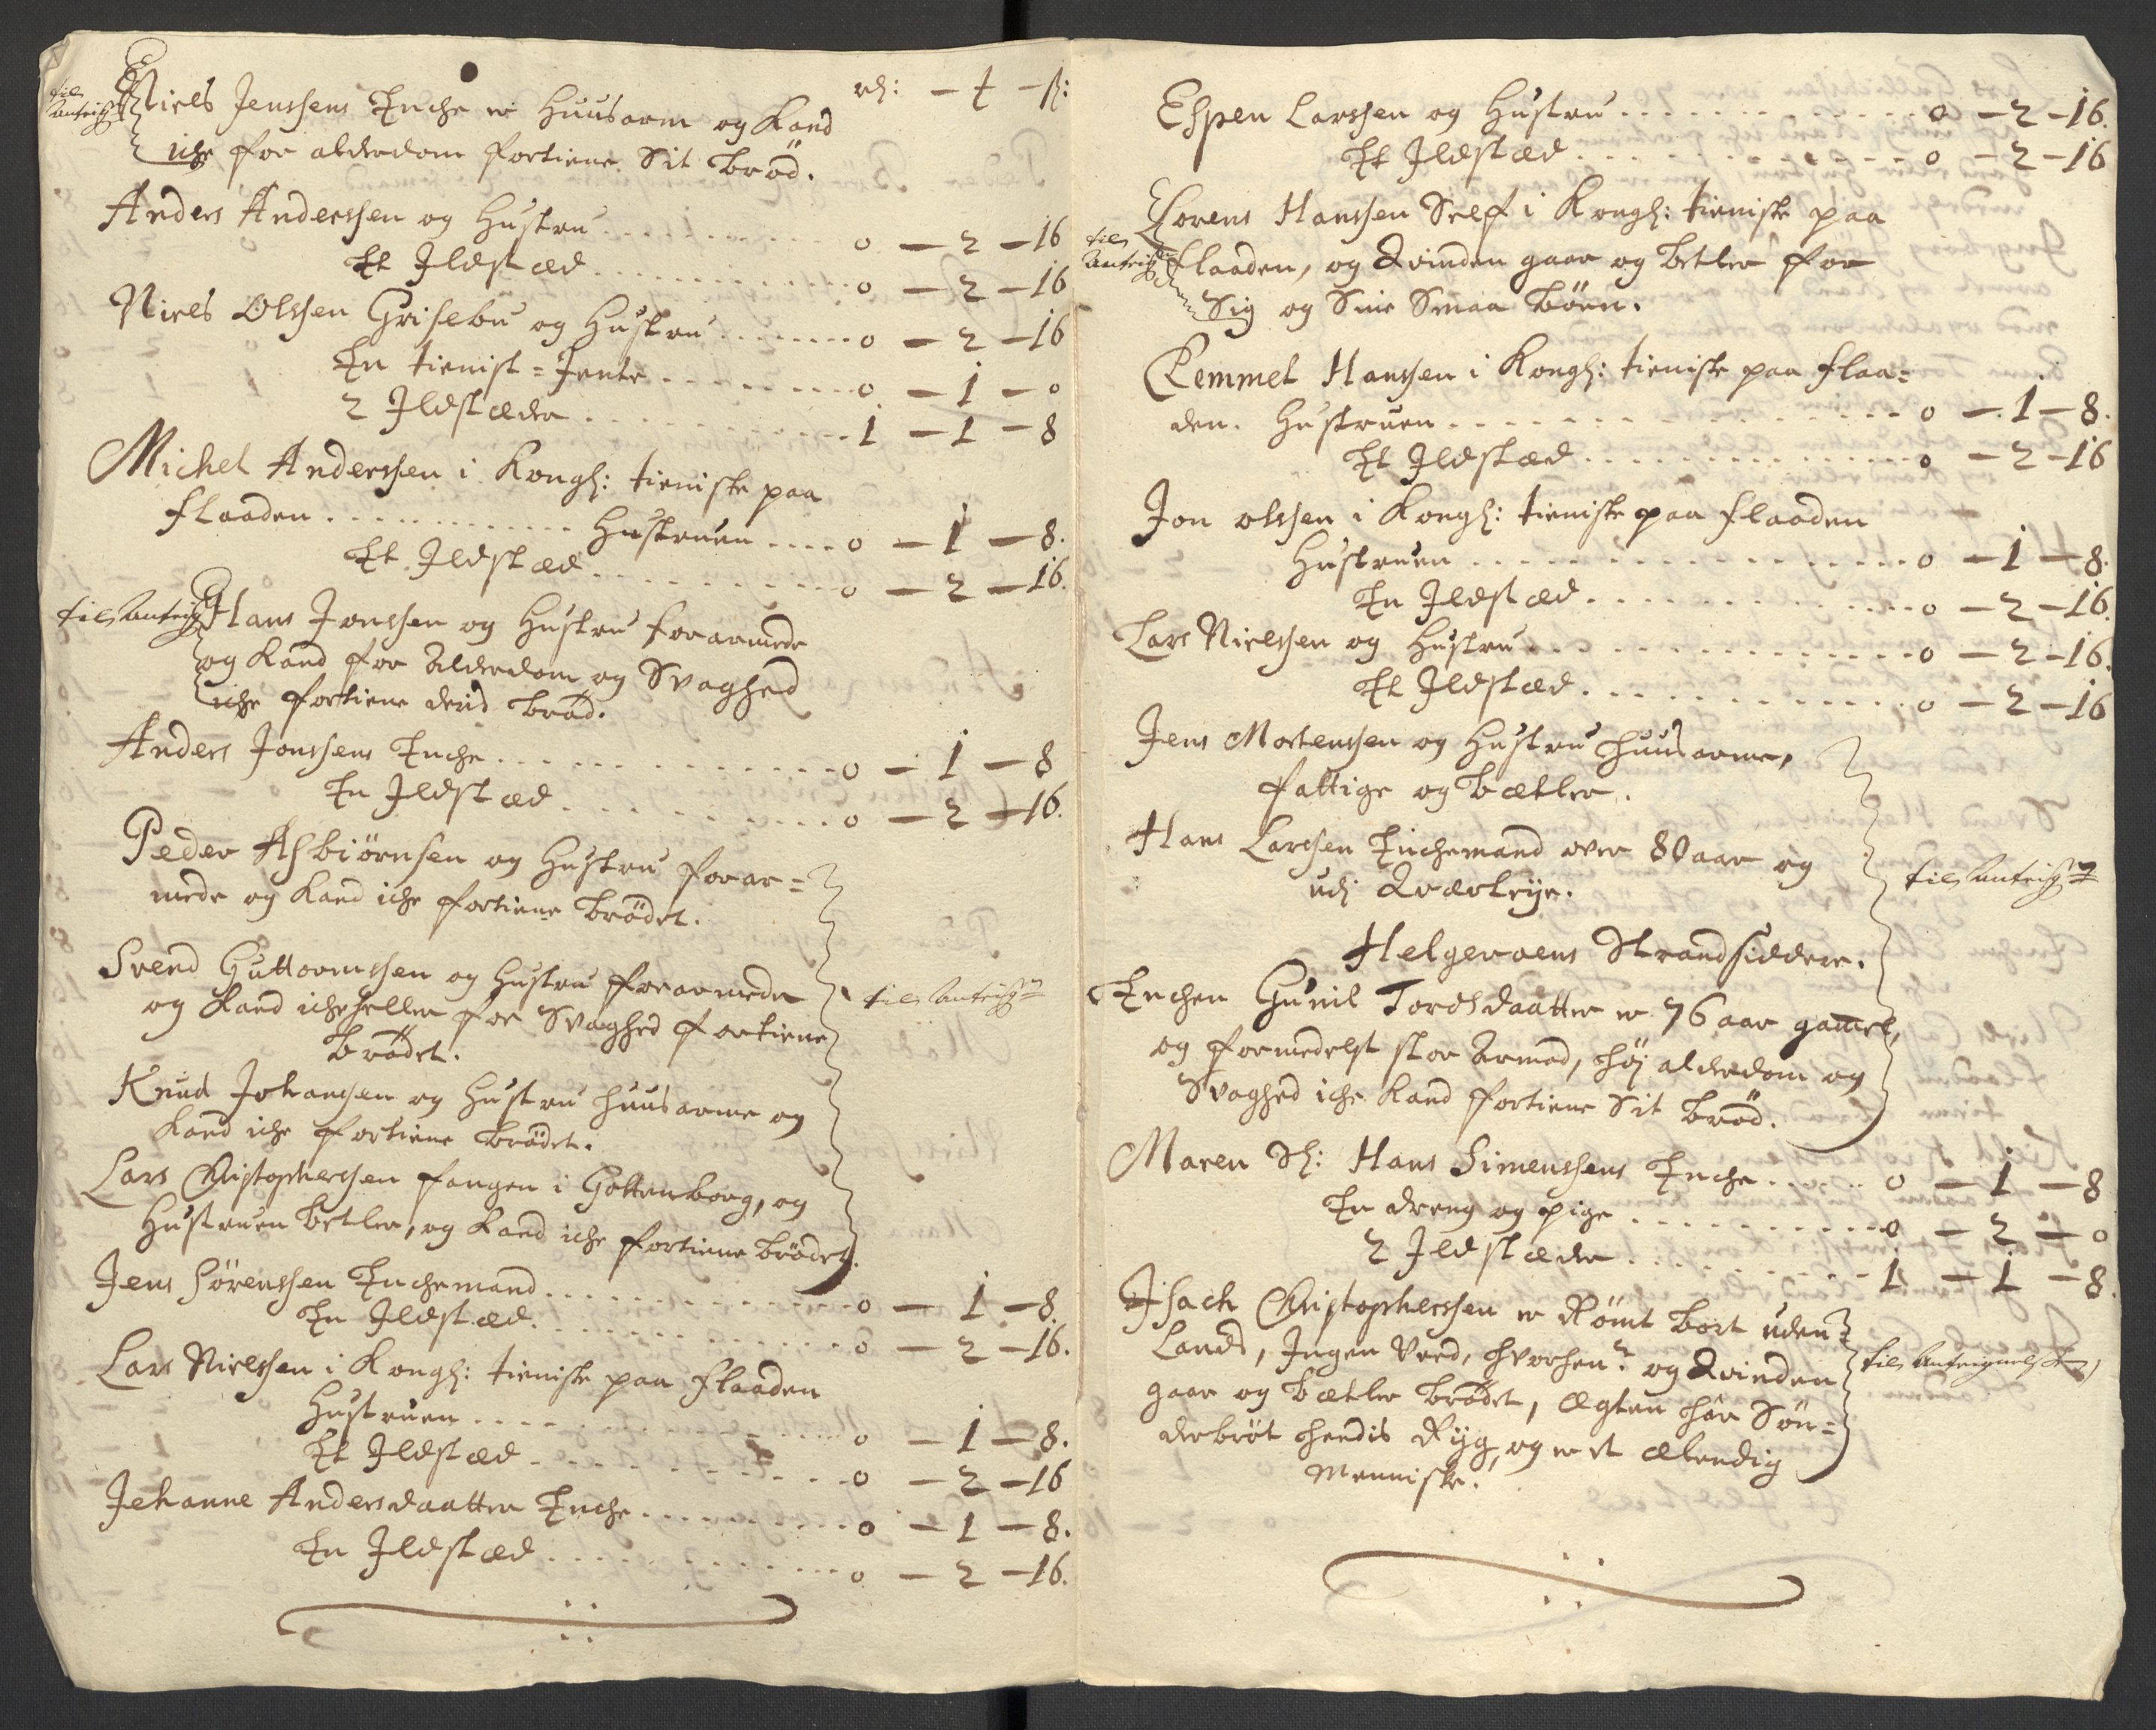 rd: – t – ß:
til Anteig
Niels Jenssens Enche er Huusarm og Kand
iche for alderdom fortiene Sit brød.
Anders Anderssen og Hustru . . . . 0 – 2 – 16
Et Ildstæd . . . . 0 – 2 – 16
Niels Olssen Grisebu og Hustru . . . . 0 – 2 – 16
En tienist-Jente . . . . 0 – 1 – 0
2 Ildstæder . . . . 1 – 1 – 8
Michel Anderssen i Kongl: tieniste paa
flaaden . . . . Hustruen . . . . 0 – 1 – 8.
Et Ildstæd . . . . 0 – 2 – 16.
til Anteig
Hans Jonssen og Hustru forarmede
og Kand for Alderdom og Svaghed
iche fortiene deris brød.
Anders Jonssens Enche . . . . 0 – 1 – 8
En Ildstæd . . . . 0 – 2 – 16.
Peder Asbiörnsen og Hustru forar=
mede og Kand iche fortiene brödet.
Svend Guttormssen og Hustru forarmede
og Kand iche heller for Svaghed fortiene
brödet.
til Anteig
Knud Johanssen og Hustru huusarme og
Kand iche fortiene brödet.
Lars Christopherssen fangen i Gottenborg, og
Hustruen betler, og Kand iche fortiene brödet.
Jens Sörenssen Enchemand . . . . 0 – 1 – 8.
En Ildstæd . . . . 0 – 2 – 16.
Lars Nielssen i Kongl: tieniste paa flaaden
Hustruen . . . . 0 – 1 – 8.
Et Ildstæd . . . . 0 – 2 – 16
Jehanne Andersdaatter Enche . . . . 0 – 1 – 8.
En Ildstæd . . . . 0 – 2 – 16.
Espen Larssen og Hustru . . . . 0 – 2 – 16.
Et Ildstæd . . . . 0 – 2 – 16
Lorens Hanssen Self i Kongl: tieniste paa
til Anteig
flaaden, og Qvinden gaar og betler for
Sig og Sine Smaa börn.
Remmet Hanssen i Kongl: tieniste paa flaa=
den. Hustruen . . . . 0 – 1 – 8.
Et Ildstæd . . . . 0 – 2 – 16
Jon olssen i Kongl: tieniste paa flaaden
Hustruen . . . . 0 – 1 – 8.
En Ildstæd . . . . 0 – 2 – 16.
Lars Nielssen og Hustru . . . . 0 – 2 – 16.
Et Ildstæd . . . . 0 – 2 – 16
Jens Mortenssen og Hustru huusarme,
fattige og bætler.
Hans Larssen Enchemand over 80 aar og
udj Qvarteye.
til Anteig
Helgeroens Strandsiddere.
Enchen Gunil Tordsdaatter er 76 aar gamel,
og formedelst stor Armod, høj alderdom og
Svaghed iche Kand fortiene Sit brød.
Maren Sl: Hans Simenssens Enche . . . . 0 – 1 – 8
En dreng og pige . . . . 0 – 2 – 0
2 Ildstæder . . . . 1 – 1 – 8.
Isach Christopherssen er Römt bort uden
Lands, Ingen Veed, hvorhen? og Qvinden
til Anteignelse
gaar og bætler brödet, Ægten har Sön=
derbröt hendis Ryg, og er et Ælendig
Menniske.